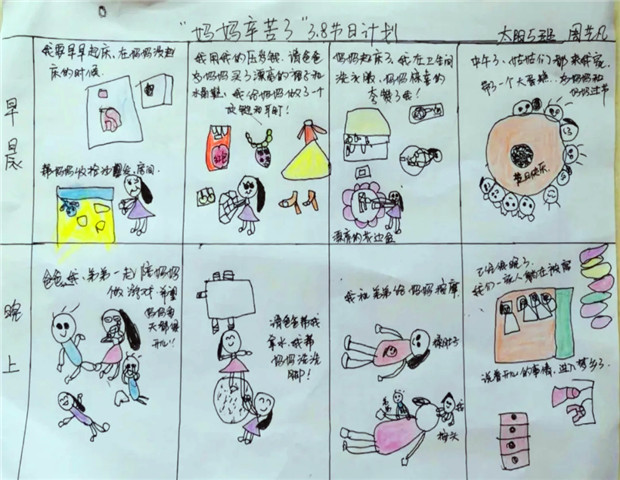 "妈妈辛苦了"3.8节日计划
太阳5班
早晨
我要早早起床,在妈妈没起
床的时候
帮妈妈收拾沙发,房间.
我用我的压岁钱,请爸爸
为妈妈买了漂亮的裙子和
水晶鞋,我给妈妈做了一个
项链和耳町!
妈妈起床了,我在卫生间
洗衣服,妈妈惊喜的
夸赞了我!
漂亮的花边盆
中午了,姑姑们都来我家
带了一个大蛋糕,为妈妈和
妈妈过节
节日快乐
晚上
爸爸,我,弟弟一起陪妈妈
做游戏.希望
妈妈每
天都很
开心!!
请爸爸帮我
拿水,我帮
妈妈洗洗
脚!
我和弟弟给妈妈按摩.
揉肚子
按头
已经很晚了.
我们一家人躺在被窝
说着开心的事情,进入梦乡了